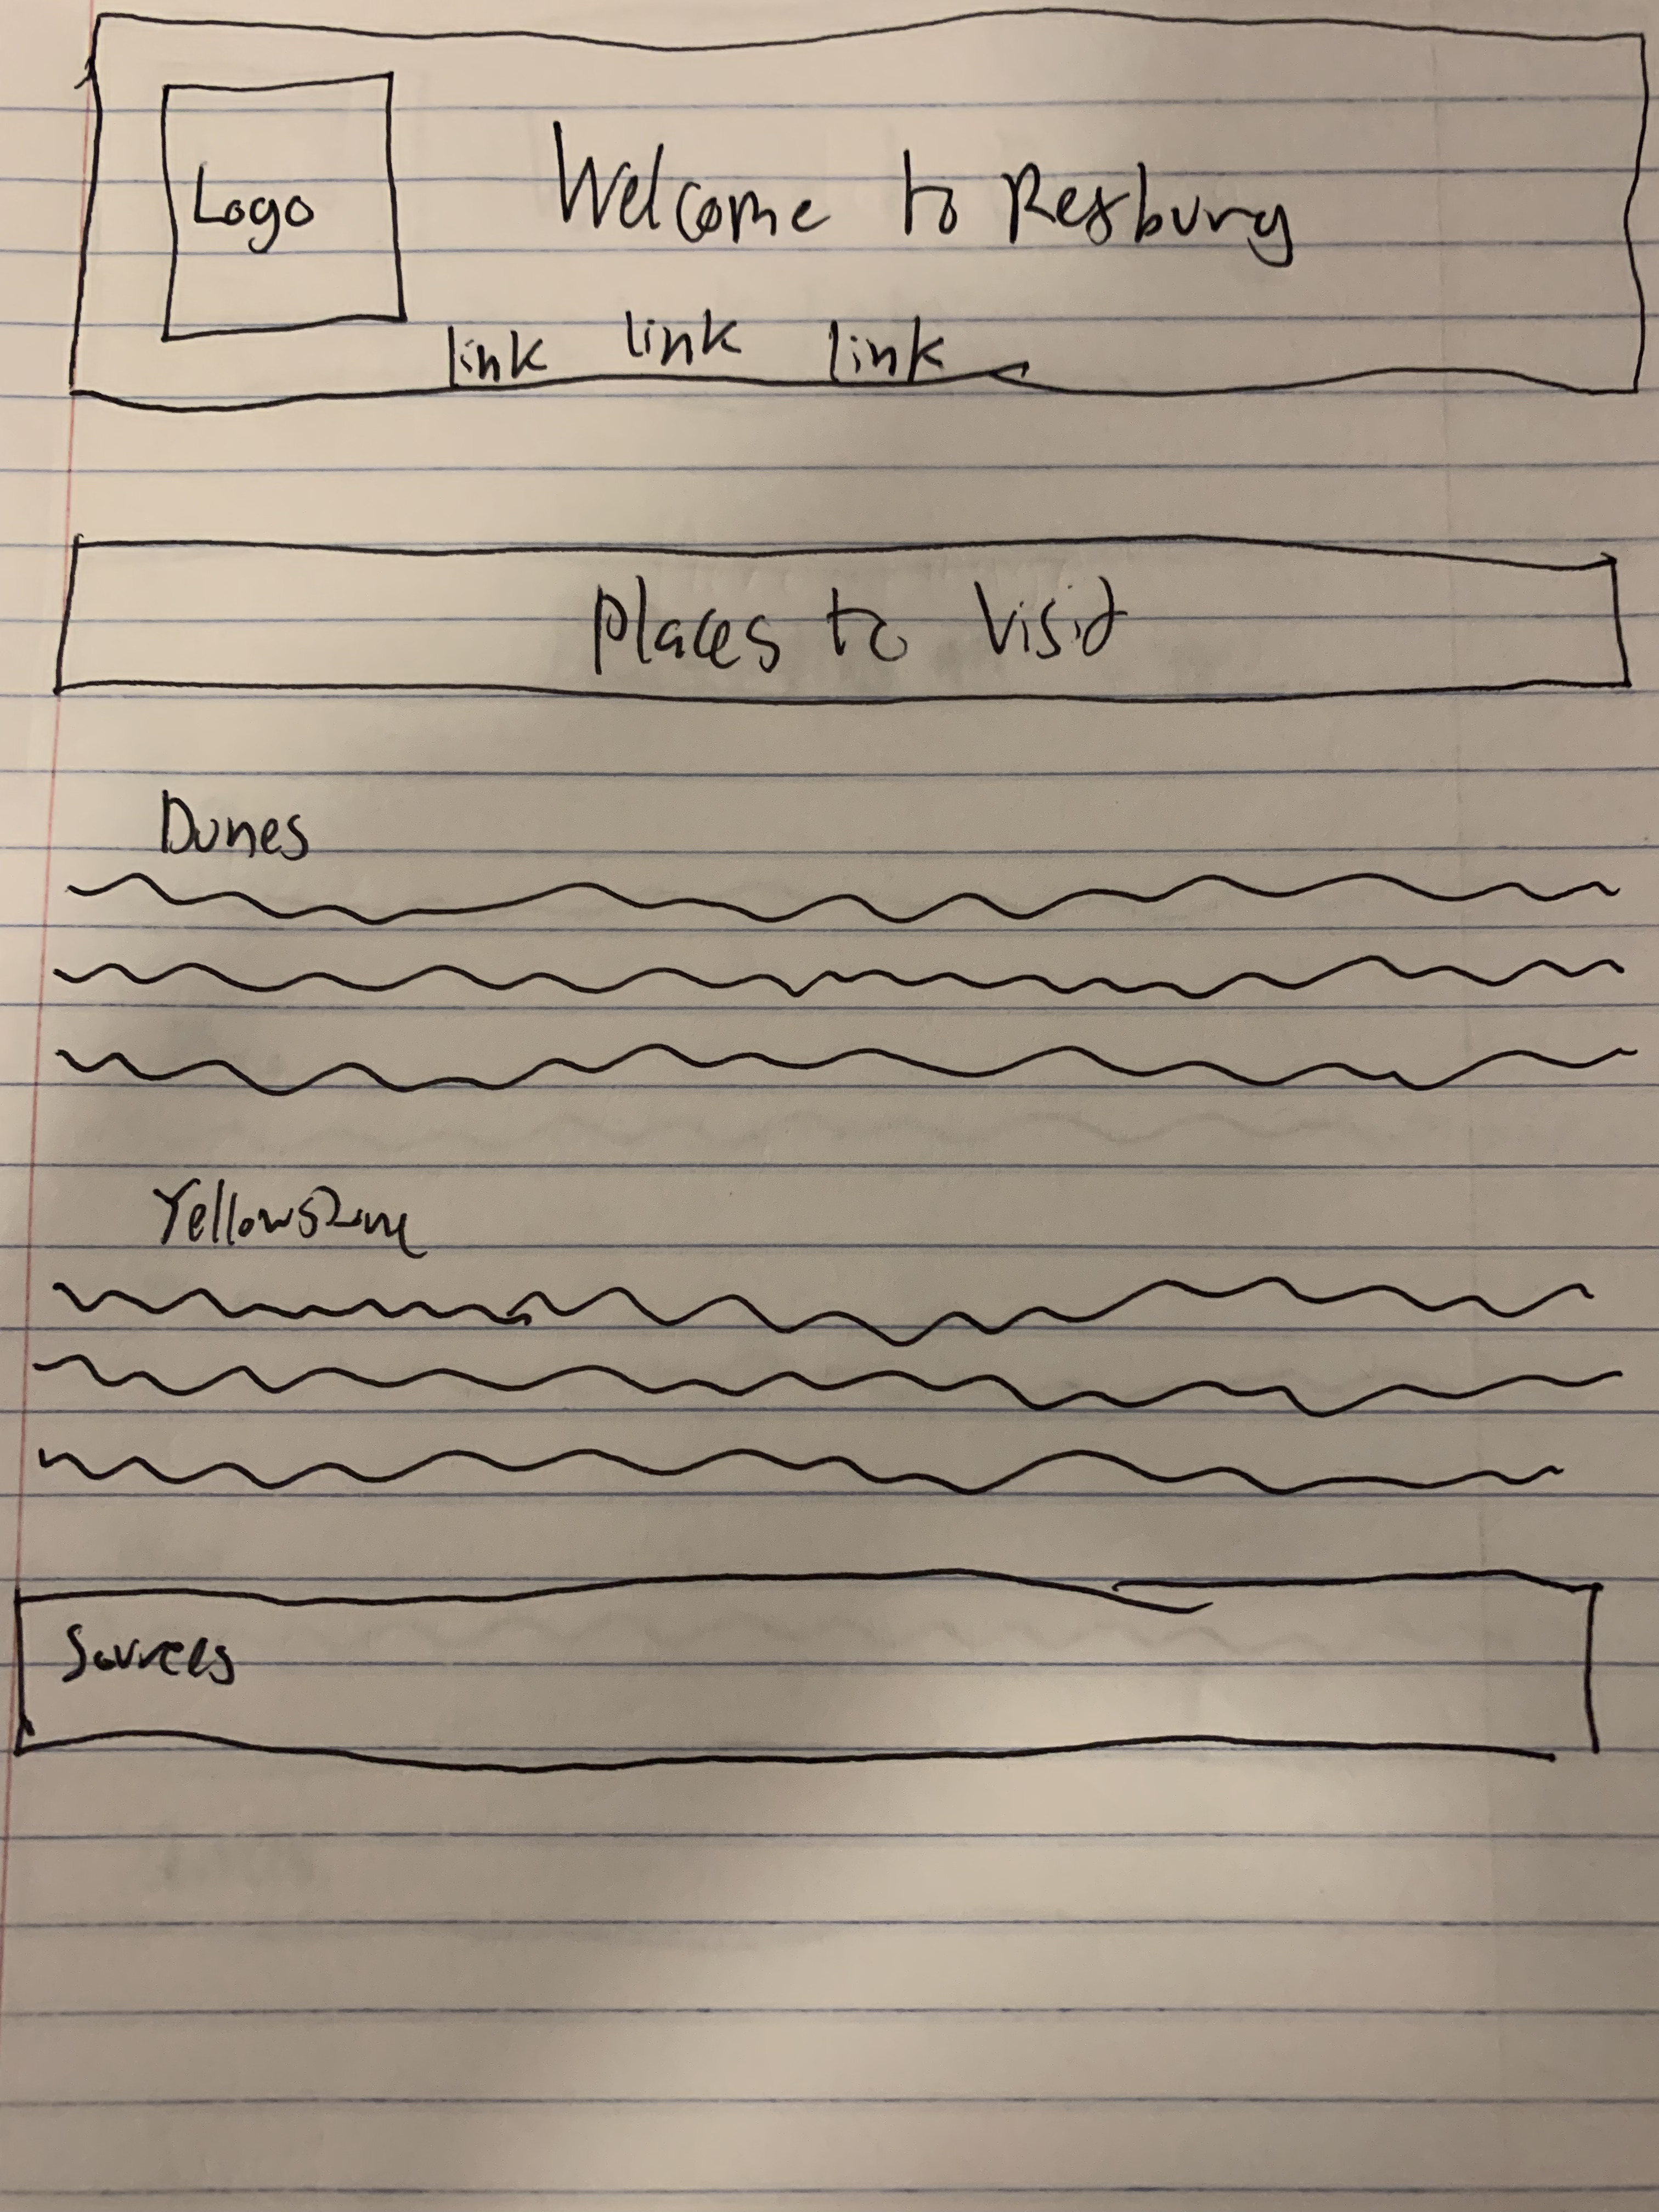 Logo
Welcome to Rexburg
link link link
Places to Visit
Dunes
Yellowstone
Sources